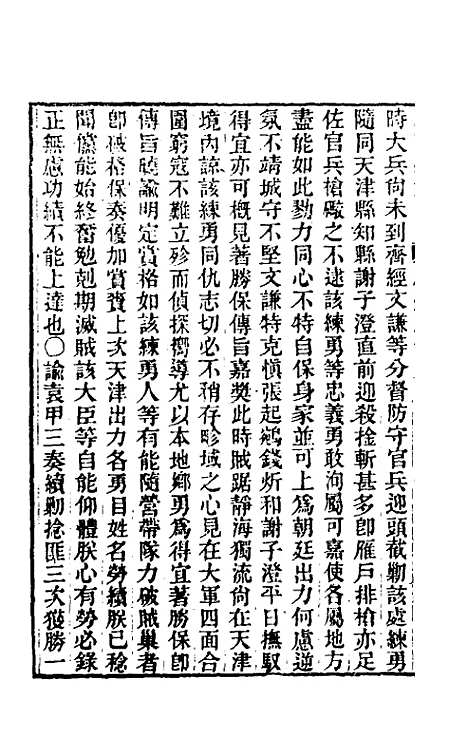 時大兵尙未到齊經文謙等分督防守官兵迎頭截勦該處練勇
隨同天津縣知縣謝子澄直前迎殺拴斬甚多卽雁戶排槍亦足
佐官兵槍礮之不逮該練勇等忠義勇敢洵屬可嘉使各屬地方
盡能如此勠力同心不特自保身家並可上爲朝廷出力何慮逆
氛不靖城守不堅文謙特克愼張起鵷錢炘和謝子澄平日撫馭
得宜亦可概見著勝保傳旨嘉奬此時賊踞靜海獨流尙在天津
境內諒該練勇同仇志切必不稍存畛域之心見在大軍四面合
圍窮寇不難立殄而偵探嚮導尤以本地鄉勇爲得宜著勝保卽
傳旨曉諭明定賞格如該練勇人等有能隨營帶隊力破賊巢者
卽破格保奏優加賞賚上次天津出力各勇目姓名勞績朕已稔
聞儻能始終奮勉剋期滅賊該大臣等自能仰體朕心有勞必錄
正無慮功績不能上達也○諭袁甲三奏續勦捻匪三次獲勝一